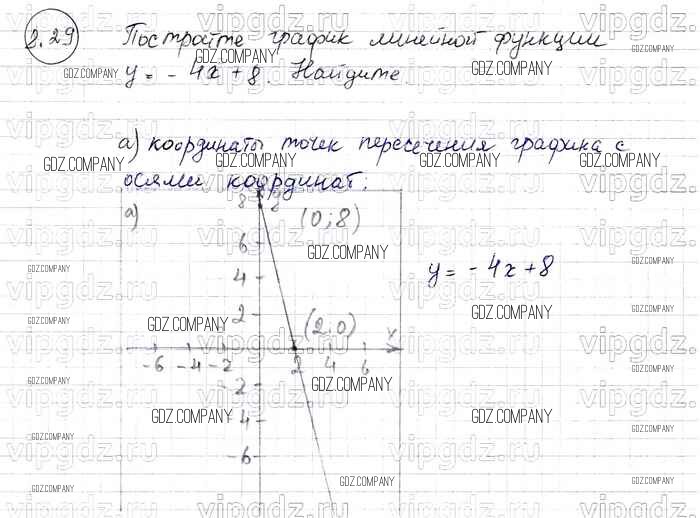 2.29 Постройте график линейной функции
y = - 4x + 8. Найдите
а) координаты точек пересечения графика с
осями координат:
а)
8
2
(0;8)
6
4
y = - 4x + 8
2
(2.0)
x
-6 -4 -2 2 4 6
-2
-4
-6
GDZ.COMPANY
vipgdz.ru